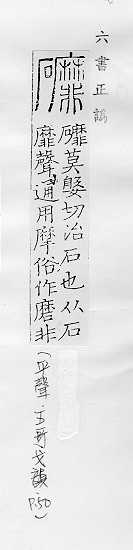 六書正譌
䃺
礳莫婴切治石也从石
靡聲通用摩俗作磨非
(平聲.五哥戈韻
P.50)